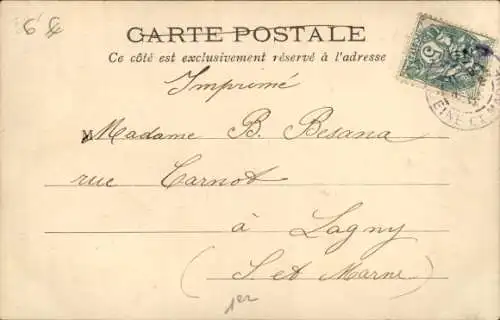 6 €
CARTE POSTALE
Ce côté est exclusivement réservé à l'adresse
Imprimé
M Madame B. Besana
rue Carnot
à Lagny
(S. et Marne)
1er